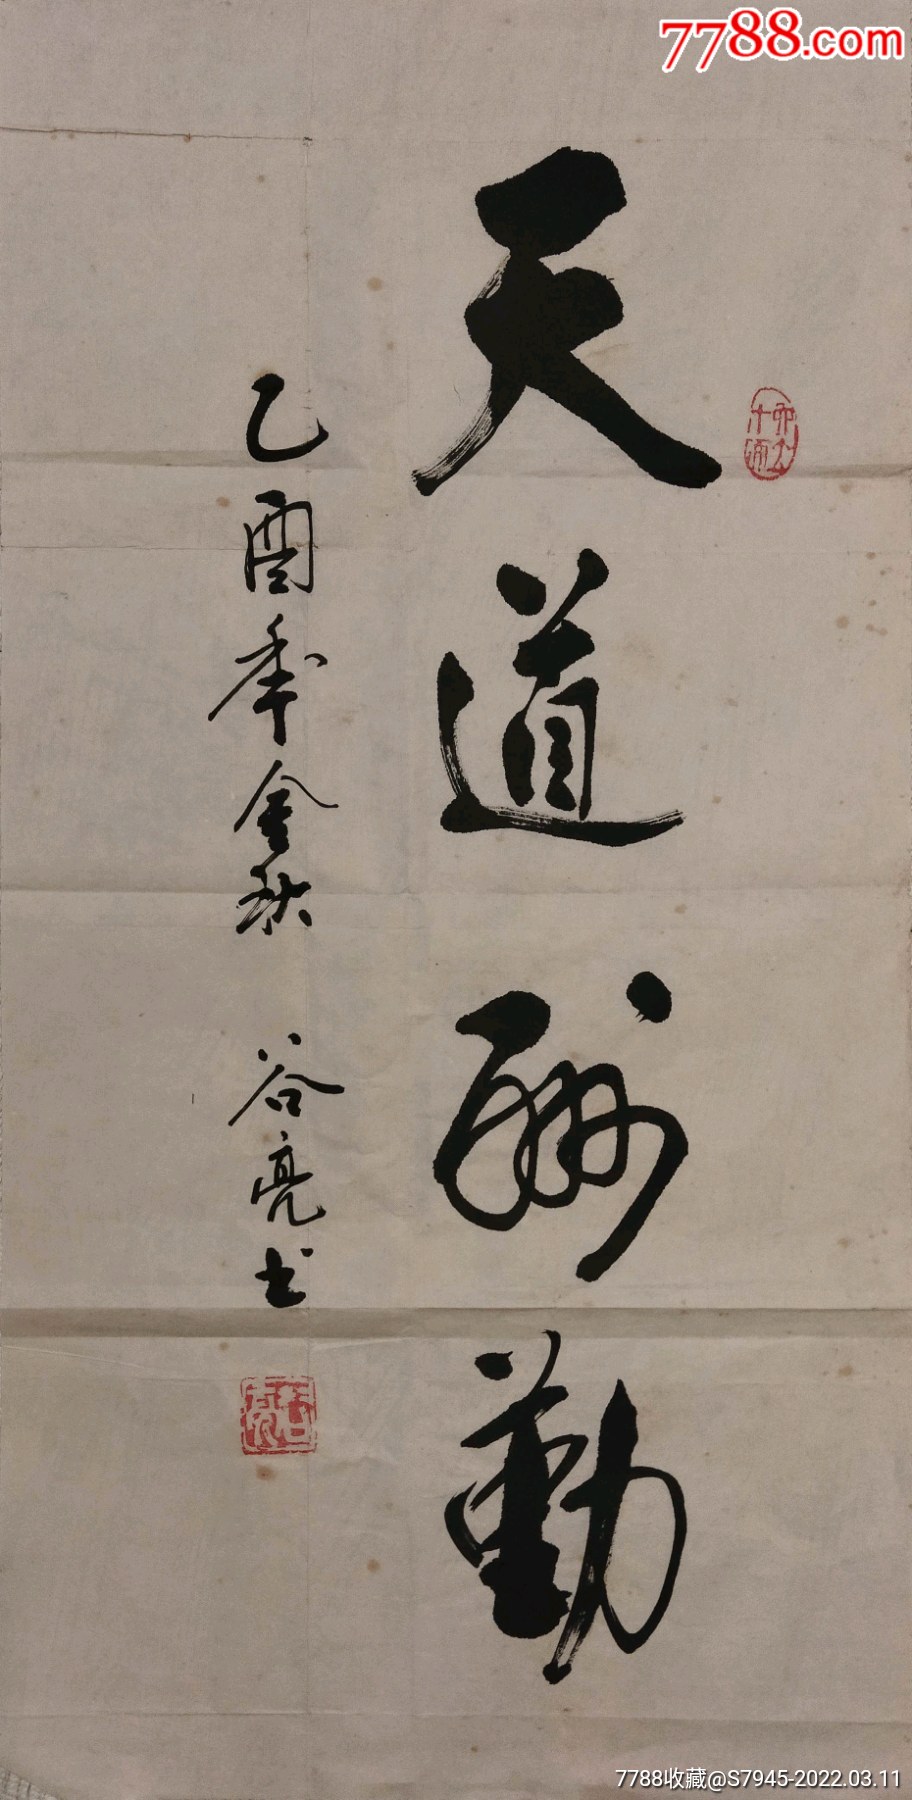 7788.com
天道酬勤
乙酉年金秋
谷亮书
7788收藏@S7945-2022.03.11